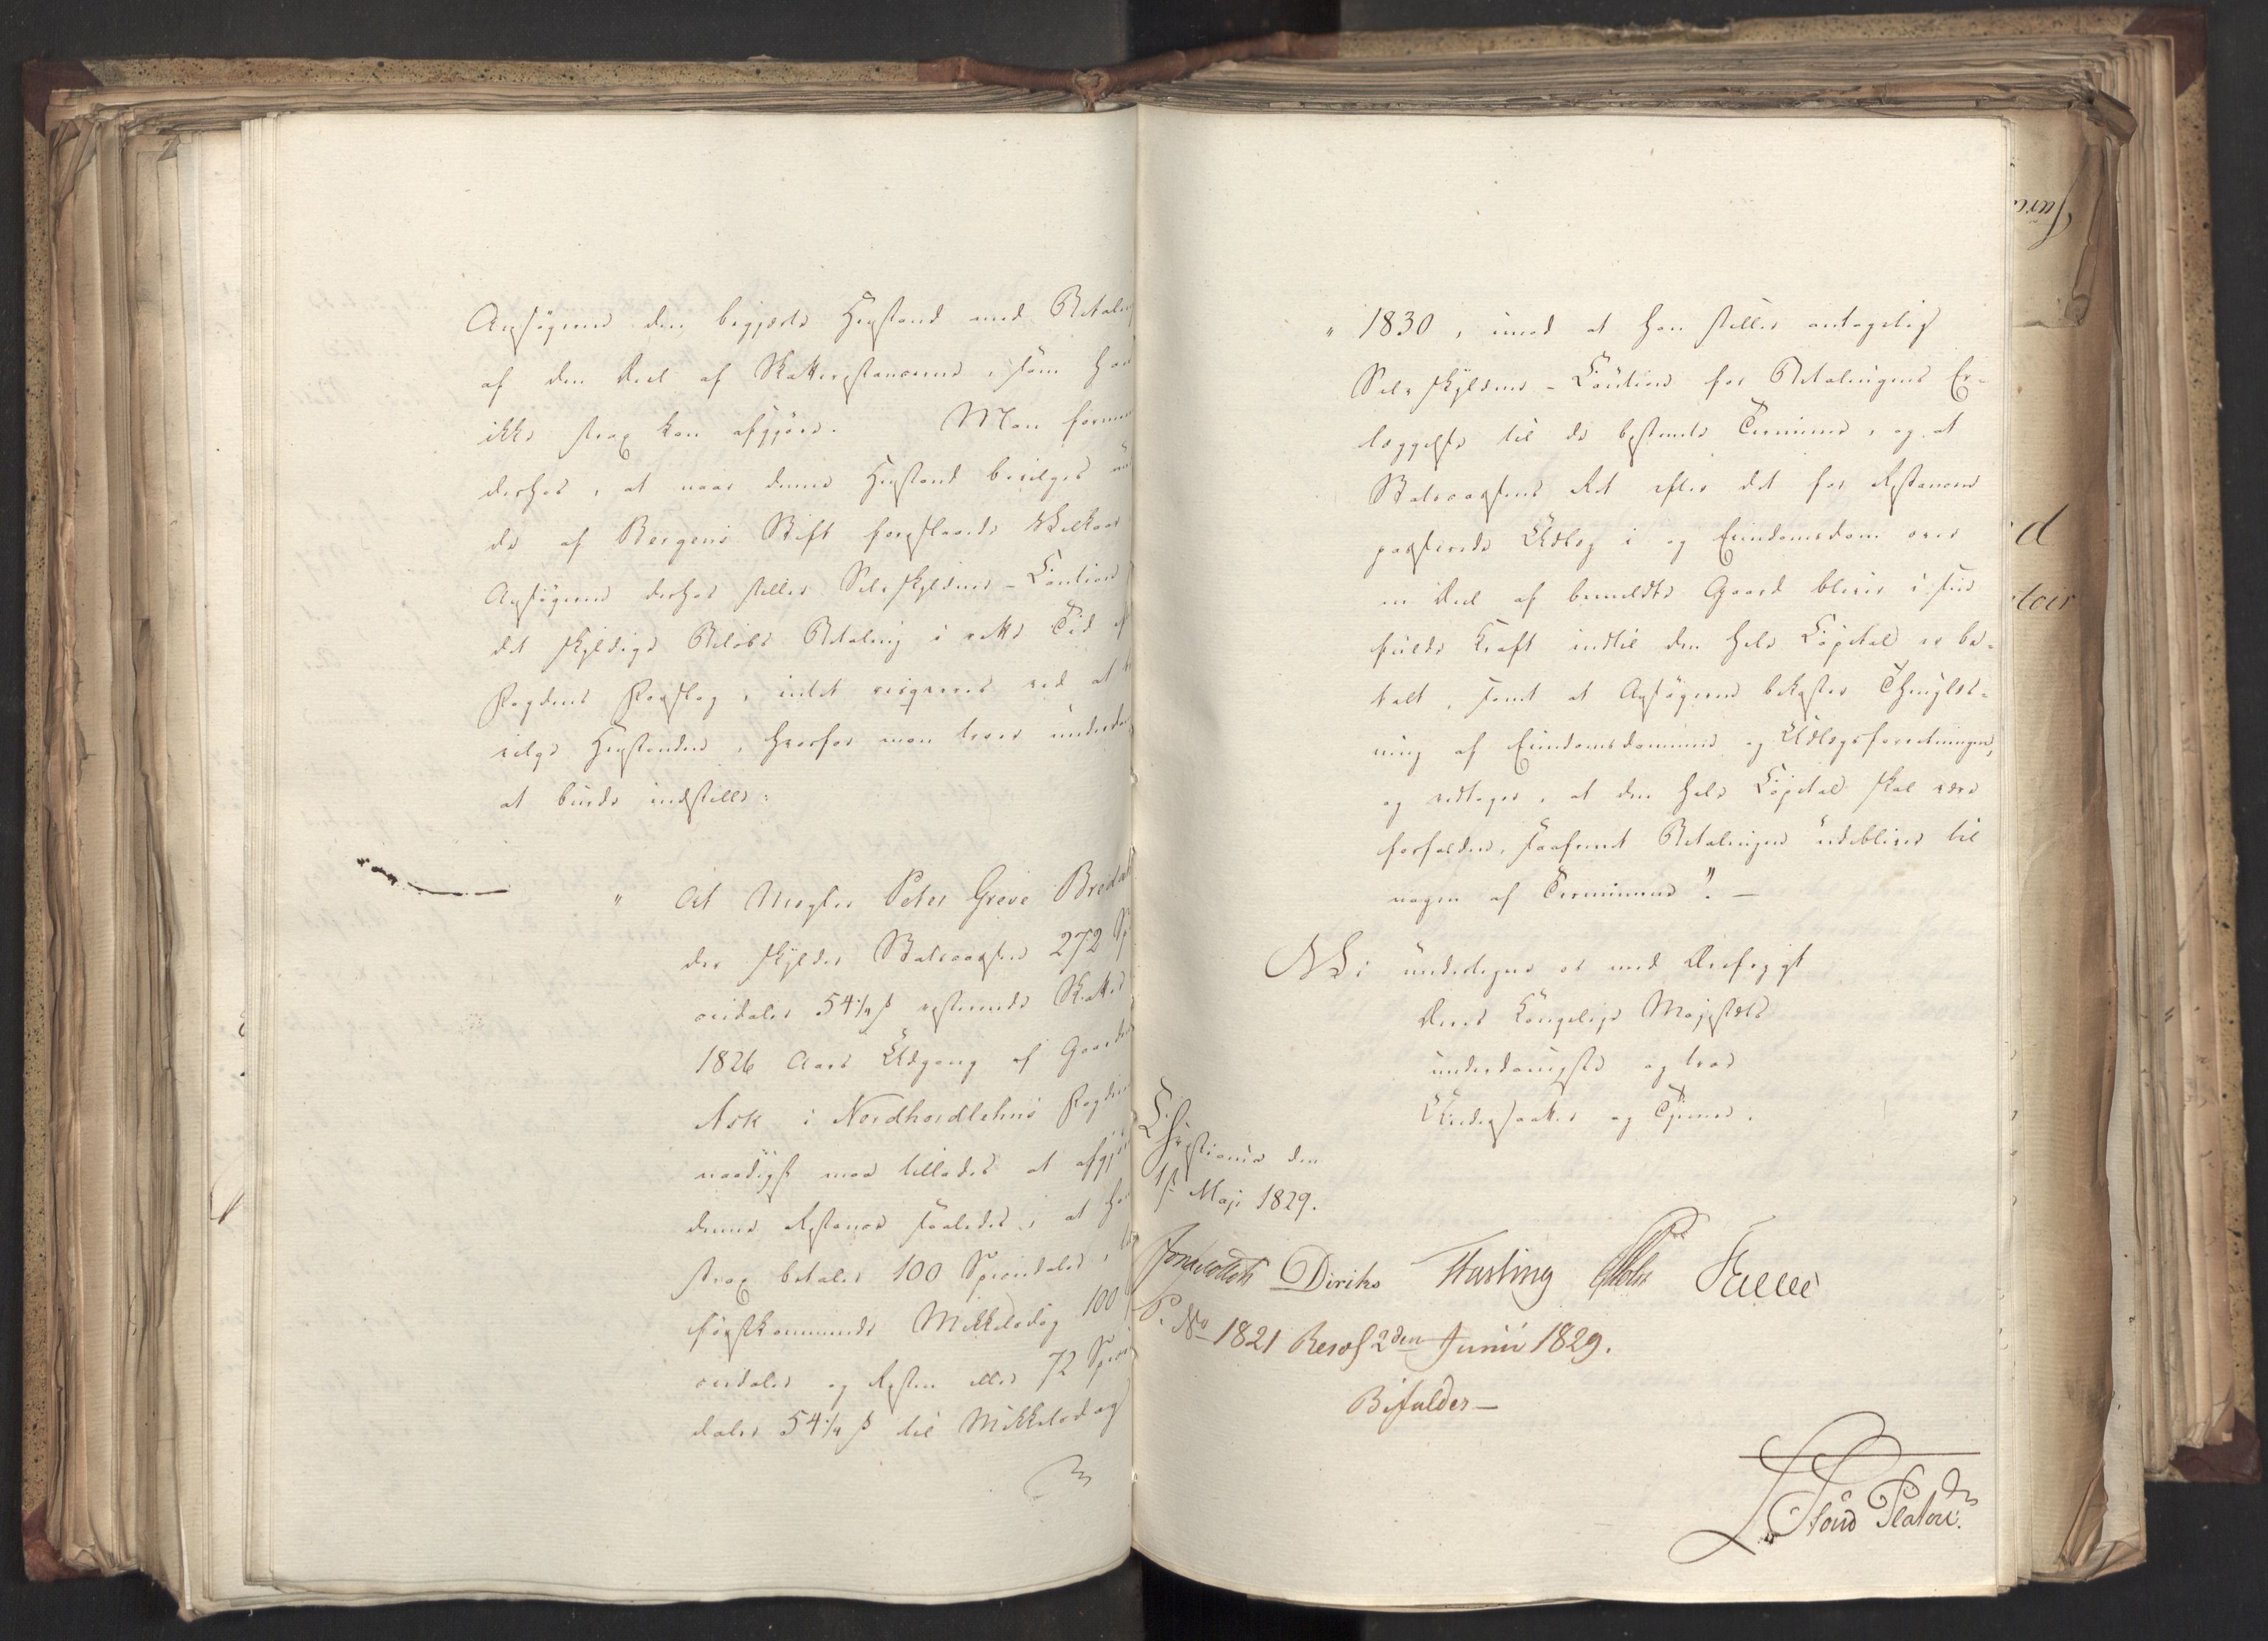 Ansøgeren den begjærte Henstand med Betaling
af den Deel af Skatterestancerne, som han
ikke strax kan afgjøre. Man formener
derhos, at naar denne Henstand bevilges
de af Bergens Stift foreslaaede Vilkaar
Ansøgeren derhos stiller Selvskyldner-Caution
det skyldige Beløbs Betaling i rette Tid
Fogdens Forslag, intet risqveres ved at
vilge Henstanden, hvorfor man troer underd
at burde indstille:
" At Megler Peter Greve Bredal
der skylder Statscassen 272 Sp
ciedaler 54 1/4 ß resterende Skatter
1826 Aars Udgang af Gaarden
Ask i Nordhordlehns Fogderie
naadigst maa tillades at afgjøre
denne Restance saaledes, at han
strax betaler 100 Speciedaler,
førstkommende Mikkelsdag 100
ciedaler og Resten eller 72 Specie
daler 54 1/4 ß til Mikkelsdag
" 1830, imod at han stiller antagelig
Selvskyldner-Caution for Betalingens Er-
læggelse til de bestemte Terminer, og at
Statscassens Ret efter det for Restancen
passerede Udlæg i og Eiendomsdom over
en Deel af bemeldte Gaard bliver i sin
fulde Kraft indtil den hele Capital er be-
talt, samt at Ansøgeren bekoster Thinglæs-
ning af Eiendomsdommen og Udlægsforretningen,
og vedtager, at den hele Capital skal være
forfalden, saafremt Betalingen udebliver til
nogen af Terminerne". —
Vi undertegne os med Dievfrygt
Deres Kongelige Majestæts
underdanigste og troe
Undersaatter og Tjenere.
Christiania den
1st Maji 1829.
Diriks Fasting Holst Falsen
P. No 1821 Resol 2den Junii 1829.
Bifalder —
Platou.